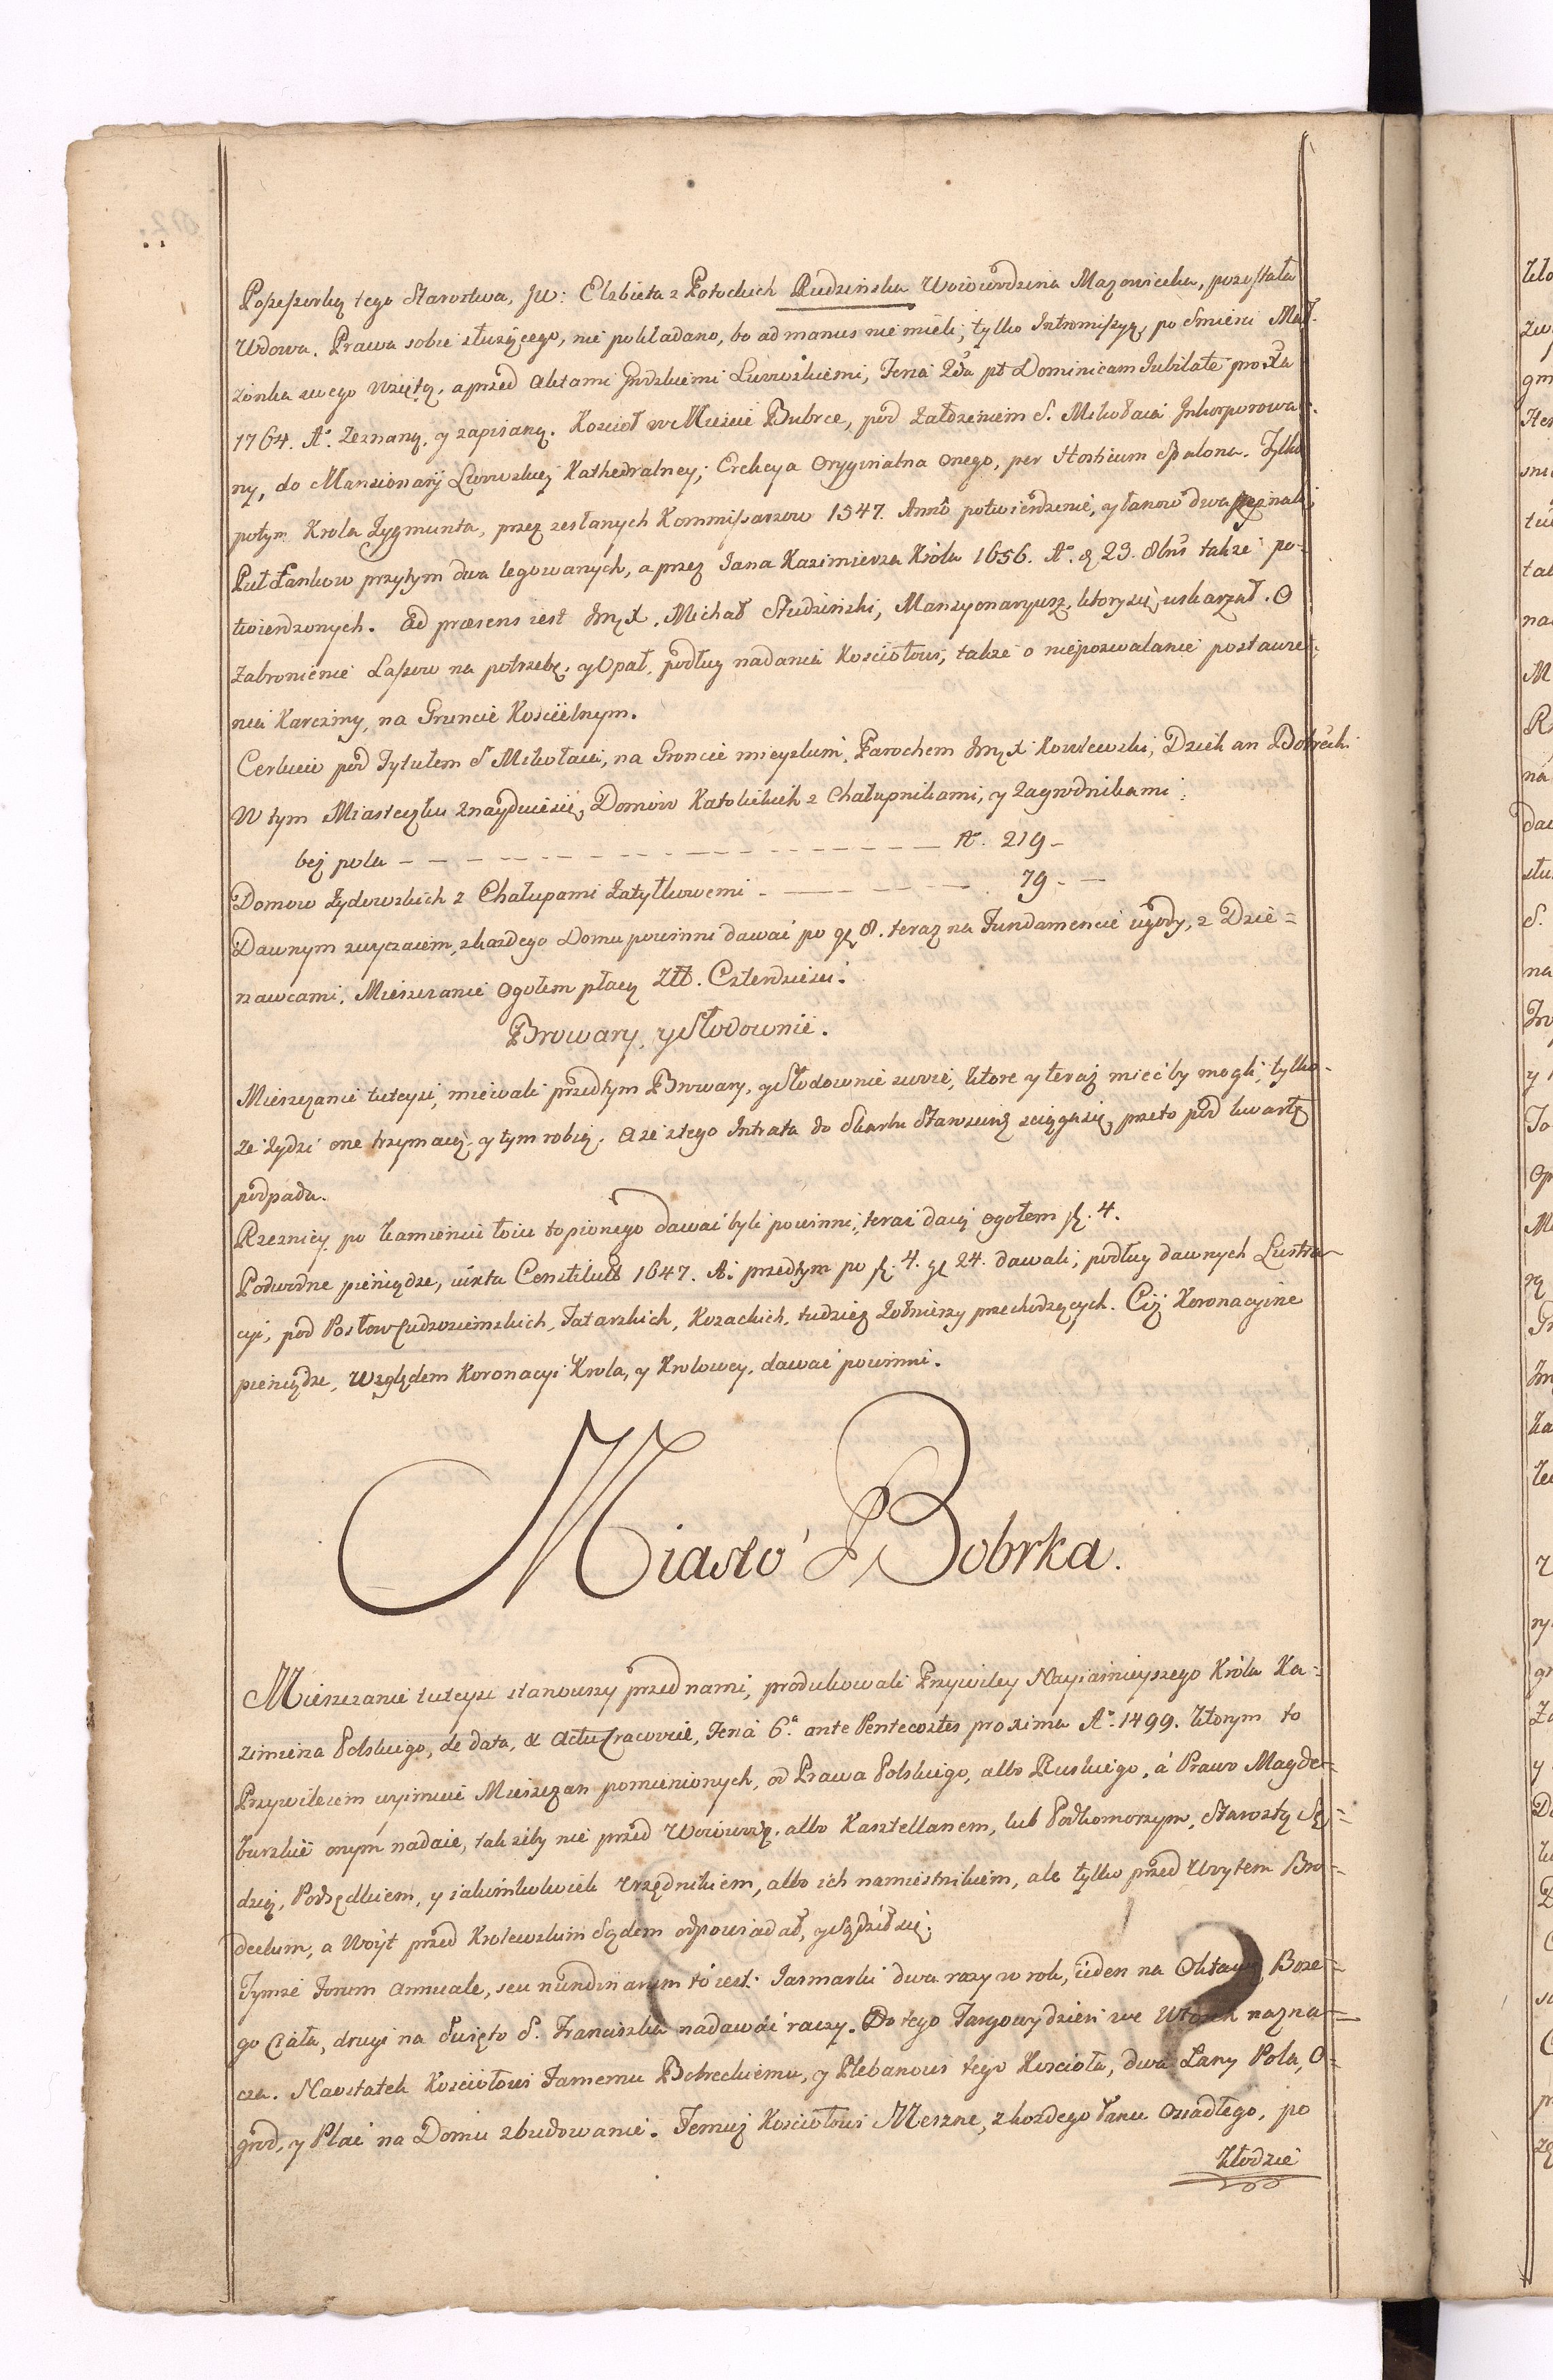 Possessorką tego Starostwa, JW: Elzbieta z Potockich Rudzinska Woiewodzina Mazowiecka, pozostała
Wdowa. Prawa sobie służącego, nie pokładano, bo ad manus nie mieli, tylko Intromissyą, po Smierci Mał-
żonka swego wziętą, a przed Aktami Grodzkiemi Lwowskiemi, Feria 2da pt Dominicam Jubilate proxa
1764. Ao. zeznaną, y zapisaną. Kosciół w Miescie Bubrce, pod załozeniem S. Mikołaia Inkorporowa-
ny, do Mansionarÿ Lwowskiey Kathedralney; Erekcya Oryginalna onego, per Hosticum spalona. Tylko
potym Krola Zygmunta, przez zesłanych Kommissarzow 1547. Anno potwierdzenie, y łanow dwa
Puł Łankow przytym dwa legowanych, a przez Jana Kazimierza Króla 1656. Ao. d 23. 8bris takze po-
twierdzonych. Ad praesens iest Jmć X. Michał Studzinski, Mansyonaryusz, ktory się uskarzał. O
zabronienie Lassow na potrzebę, y Opał, podług nadania Kosciołowi, takze o niepozwalanie postawie-
nia Karczmy, na Gruncie Koscielnym.
Cerkiew pod Tytułem S Mikołaia, na Gruncie mieyskim, Parochem Jmć X Kowlewski, Dziekan Bobrecki
W tym Miasteczku znayduiesię, Domow Katolickich z Chałupnikami, y Zagrodnikami
bez pola — — — — — No. 219 —
Domow Zydowskich z Chałupami Zatyłkowemi — — — — 79 — —
Dawnym zwyczaiem, zkazdego Domu powinni dawać po gr 8. teraz na Fundamencie ugody, z Dzie=
rzawcami, Mieszczanie Ogołem płacą Złł. Czterdziesci.
Browary, y Słodownie.
Mieszczanie tuteysi, miewali przedtym Browary, y Słodownie swoie, ktore y teraz mieć by mogli, tylko
że Zydzi one trzymaią, y tym robią. A że z tego Intrata do Skarbu Starosciń sciąga się, przeto pod kwartę
podpada.
Rzeznicy po kamieniu łoiu topionego dawać byli powinni, teraz daią ogołem fl. 4.
Podwodne pieniądze, iuxta Constitut 1647. A. przedtym po fl. 4. gr 24. dawali, podług dawnych Lustra-
cyi, pod Posłow Cudzoziemskich, Tatarskich, Kozackich, tudziez Zołnierzy przechodzących. Ciż Koronacyine
pieniądze, Względem Koronacyi Krola, y Krolowey, dawać powinni.
Miasto Bobrka.
Mieszczanie tuteysi stanowszy przed nami, produkowali Przywiley Nayiasnieyszego Króla Ka=
zimierza Polskiego, de data, & Actu Cracoviæ, Feria 6a. ante Pentecostes proxima Ao. 1499. ktorym to
Przywileiem wyimuie Mieszczan pomienionych, od Prawa Polskiego, albo Ruskiego, á Prawo Magde-
burskie onym nadaie, tak żeby nie przed Woiewodą, albo Kasztellanem, lub Podkomorzym, Starostą Sę=
dzią, Podsędkiem, y iakimkolwiek Urzędnikiem, albo ich namiestnikiem, ale tylko przed Woytem Bro=
deckim, a Woyt przed Krolewskim Sądem odpowiadał, y Sądził się.
Tymże Forum annuale, seu nundinarum to iest: Jarmarki dwa razy w rok, ieden na Oktawę Boze=
go Ciała, drugi na Swięto S. Franciszka nadawać raczy. Do tego Targowy dzień we Wtorek nazna=
cza. Naostatek Kosciołowi Farnemu Bobreckiemu, y Plebanowi tego Koscioła, dwa Łany Pola, O=
grod, y Plac na Domu zbudowanie. Temuż Kosciołowi Meszne, z kozdego łanu Osiadłego, po
Kłodzie